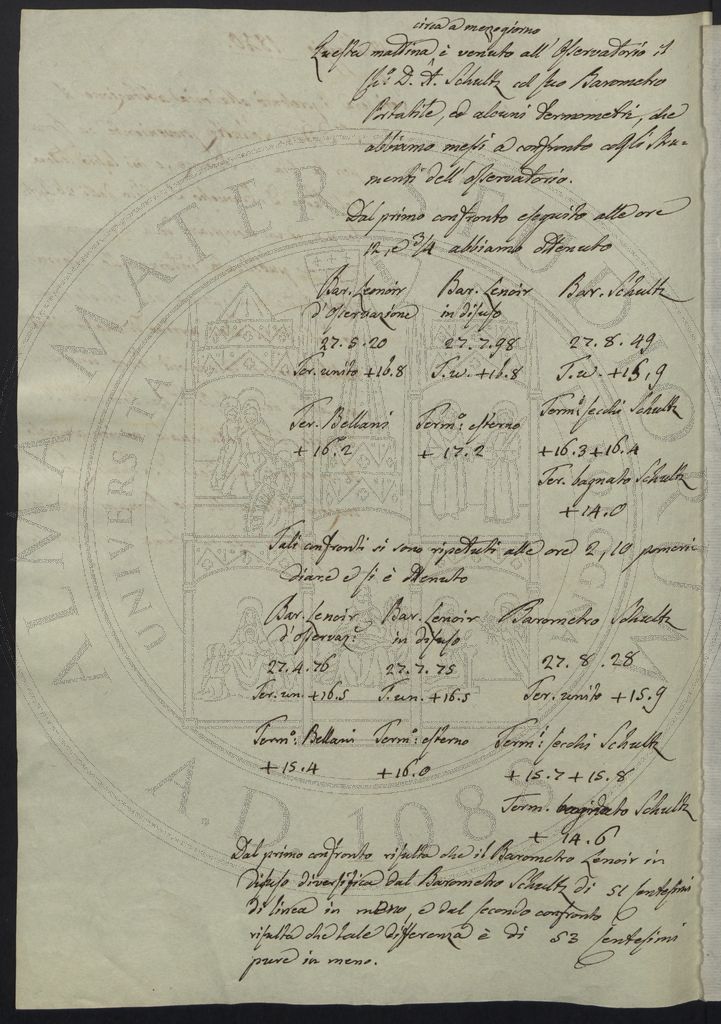 circa a mezzogiorno
Questa mattina è venuto all'Osservatorio il
Sig.r D. A. Schultz col suo Barometro
Portatile, ed alcuni termometri, che
abbiamo messi a confronto cogli stru-
menti dell'osservatorio.
Dal primo confronto eseguito alle ore
12, e 3/4 abbiamo ottenuto
Bar. Lenoir Bar. Lenoir Bar. Schultz
d'osservazione in disuso
27.5.20 27.7.98 27.8.49
Ter. unito +16.8 T. u. +16.8 T. u. +15,9
Ter. Bellani Termo: esterno Termi: secchi Schultz
+16.2 +17.2 +16.3 +16.4
Ter. bagnato Schultz
+14.0
Tali confronti si sono ripetuti alle ore 2, 10 pomeri-
diane e si è ottenuto
Bar. Lenoir Bar. Lenoir Barometro Schultz
d'osservaz.e in disuso
27.4.76 27.7.75 27.8.28
Ter. un. +16.5 T. un. +16.5 Ter. unito +15.9
Termo: Bellani Termo: esterno Termi: secchi Schultz
+15.4 +16.0 +15.7 +15.8
Term. bagnato Schultz
+14.6
Dal primo confronto risulta che il Barometro Lenoir in
disuso diversifica dal Barometro Schultz di 51 Centesimi
di linea in meno, e dal secondo confronto
risulta che tale differenza è di 53 Centesimi
pure in meno.
ALMA MATER STUDIORUM
UNIVERSITÀ DI BOLOGNA
A.D. 1088